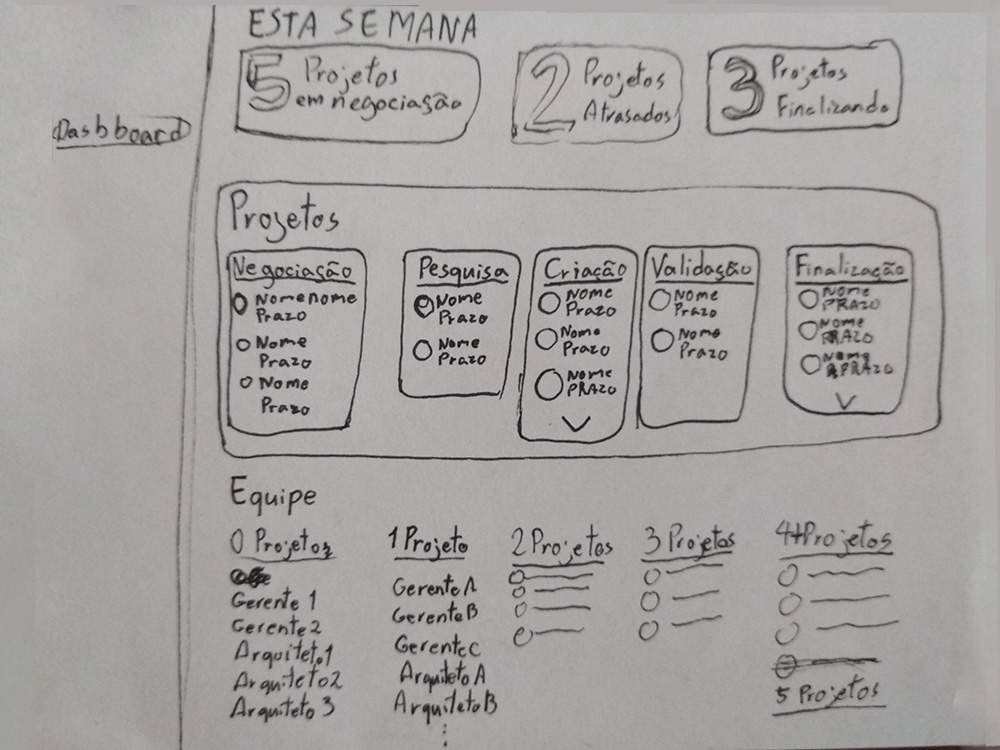 ESTA SEMANA
5 Projetos
em negociação
2 Projetos
Atrasados
3 Projetos
Finalizando
Dashboard
Projetos
Negociação
Nomenome
Prazo
Nome
Prazo
Nome
Prazo
Pesquisa
Nome
Prazo
Nome
Prazo
Criação
Nome
Prazo
Nome
Prazo
Nome
PRAZO
Validação
Nome
Prazo
Nome
Prazo
Finalização
Nome
PRAZO
Nome
PRAZO
Nome
PRAZO
Equipe
0 Projetos
Gerente 1
Gerente 2
Arquiteto 1
Arquiteto 2
Arquiteto 3
1 Projeto
Gerente A
Gerente B
Gerente C
Arquiteto A
Arquiteto B
2 Projetos
3 Projetos
4+Projetos
5 Projetos